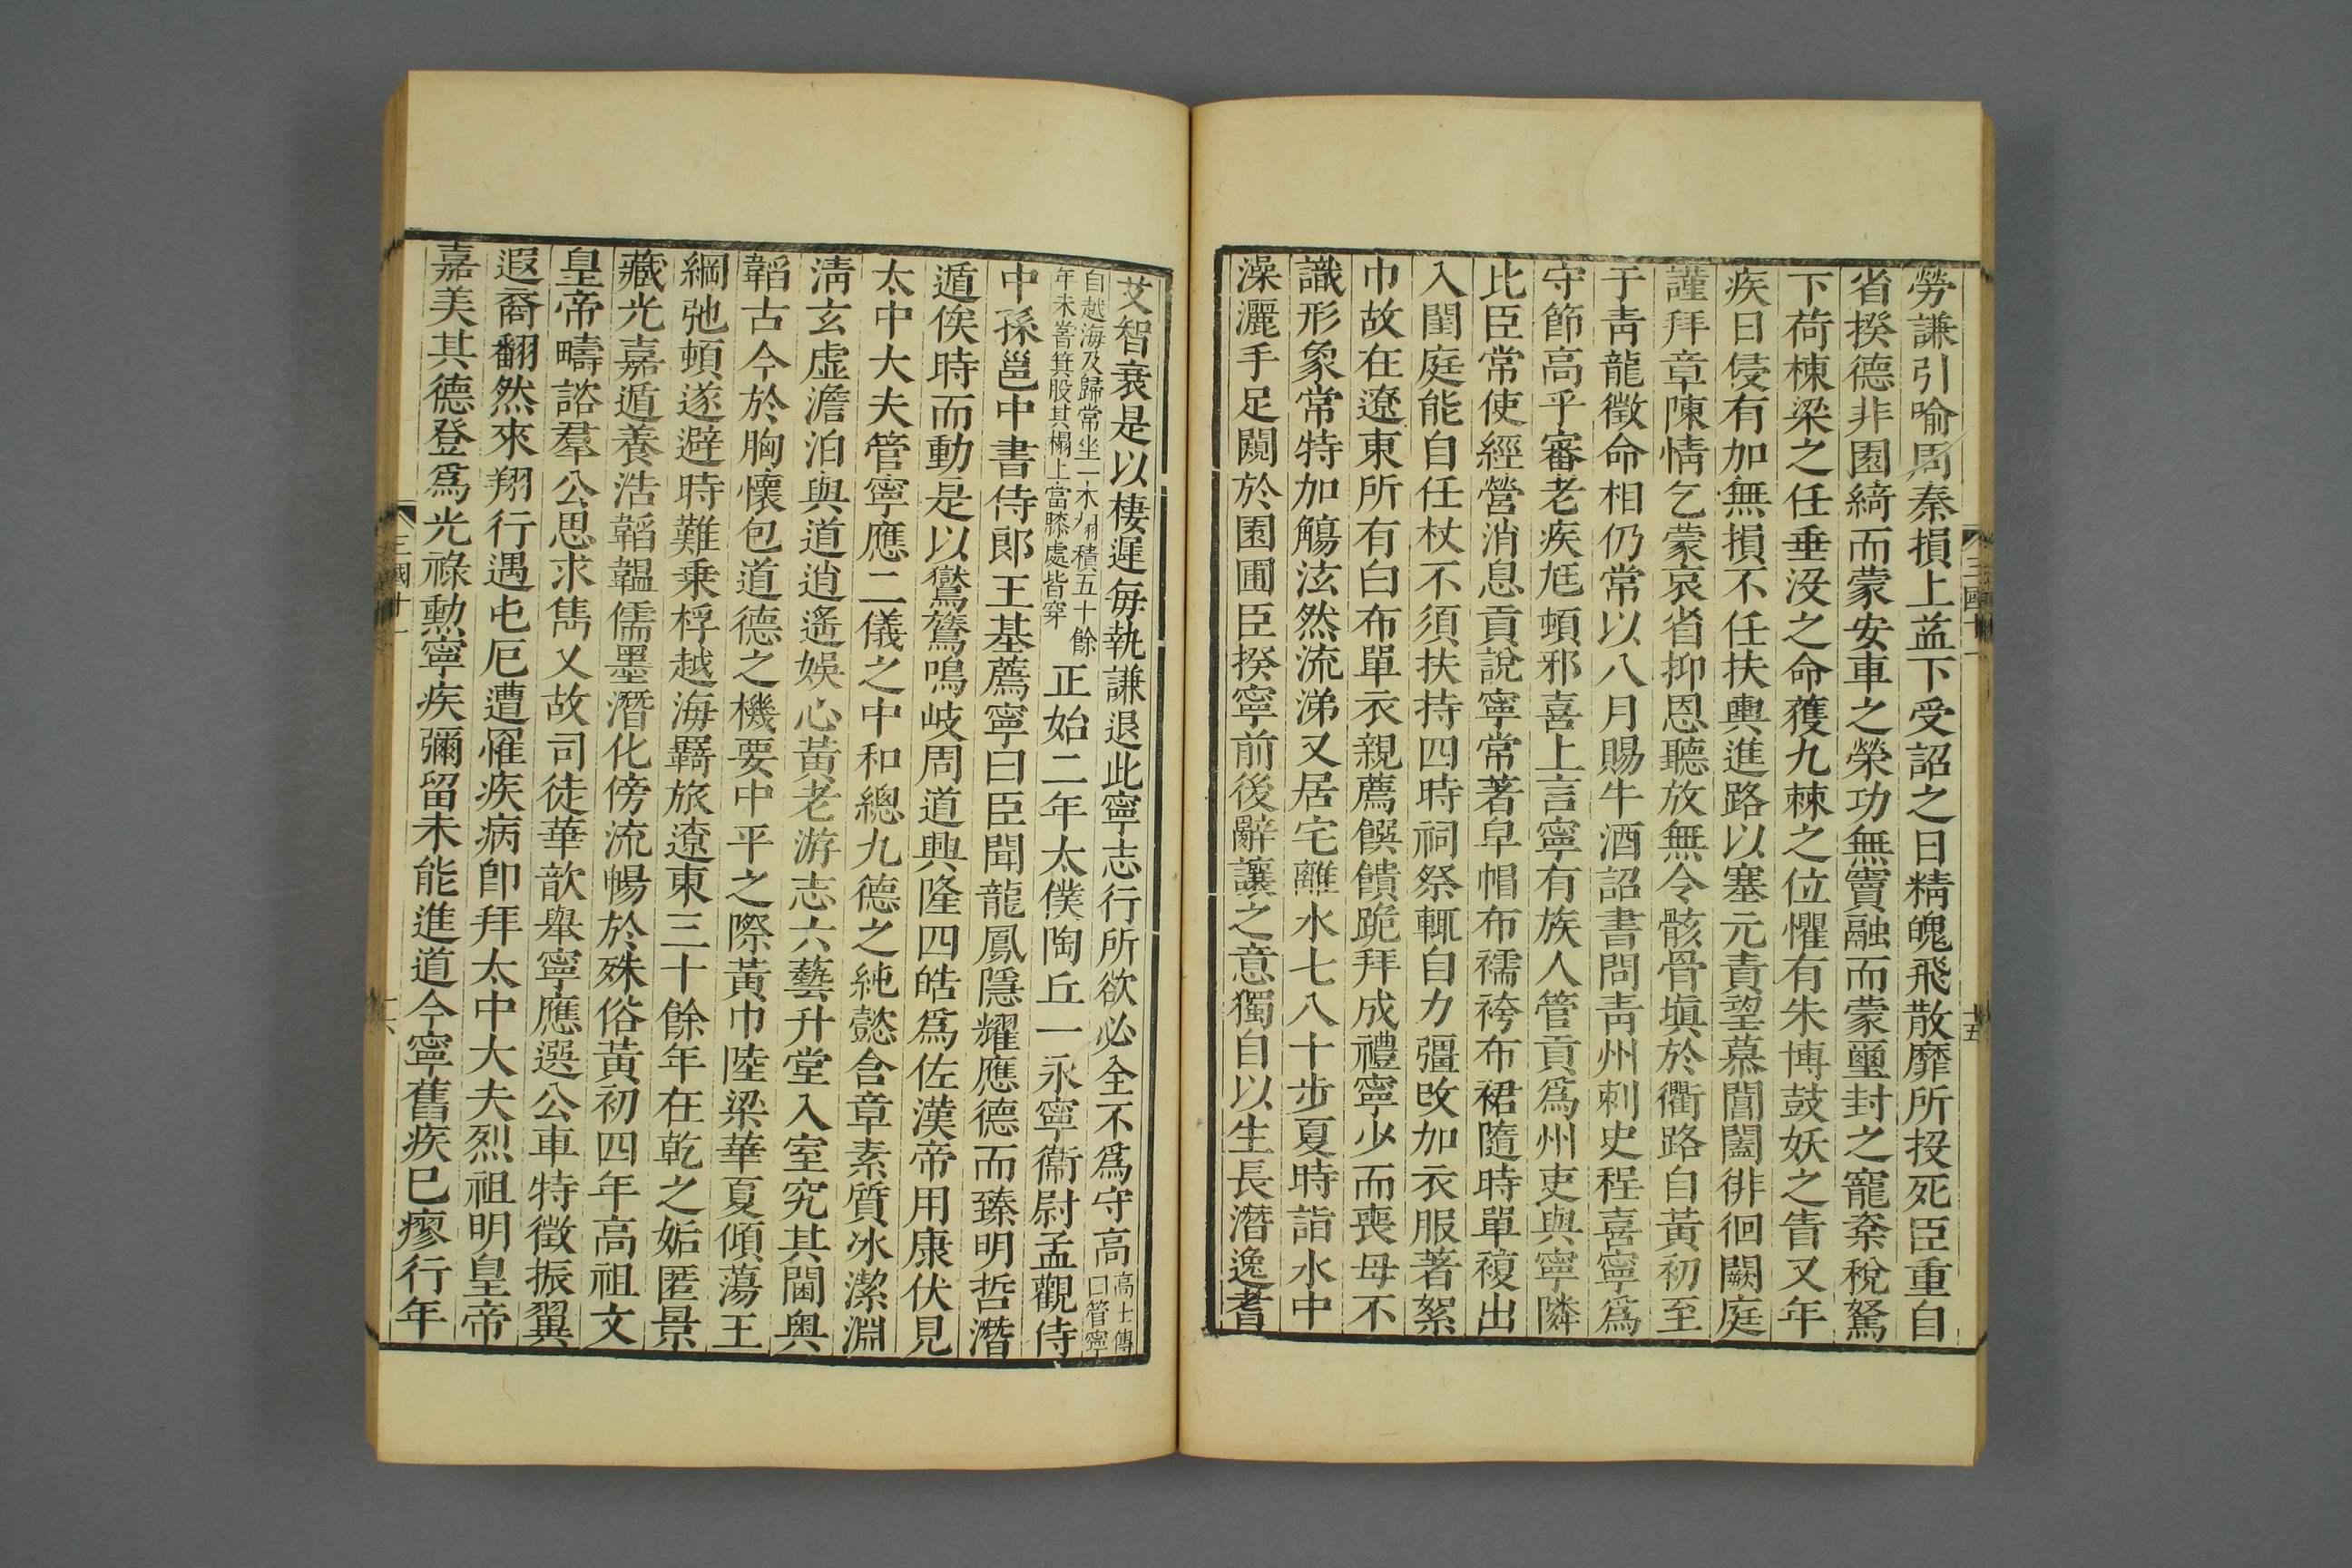 勞謙引喻周秦損上益下受詔之日精魄飛散靡所投死臣重自
省揆德非園綺而蒙安車之榮功無竇融而蒙璽封之寵楶梲駑
下荷棟梁之任垂沒之命獲九棘之位懼有朱博鼓妖之眚又年
疾日侵有加無損不任扶輿進路以塞元責望慕閶闔徘徊闕庭
謹拜章陳情乞蒙哀省抑恩聽放無令骸骨塡於衢路自黃初至
于靑龍徵命相仍常以八月賜牛酒詔書問靑州刺史程喜寧爲
守節高乎審老疾尫頓邪喜上言寧有族人管貢爲州吏與寧隣
比臣常使經營消息貢說寧常著皁帽布襦袴布裙隨時單複出
入閨庭能自任杖不須扶持四時祠祭輒自力彊改加衣服著絮
巾故在遼東所有白布單衣親薦饌饋跪拜成禮寧少而喪母不
識形象常特加觴泫然流涕又居宅離水七八十步夏時詣水中
澡灑手足闚於園圃臣揆寧前後辭讓之意獨自以生長潛逸耆
三國十一
十五
艾智衰是以棲遲每執謙退此寧志行所欲必全不爲守高高士傳曰管寧
自越海及歸常坐一木榻積五十餘年未嘗箕股其榻上當膝處皆穿正始二年太僕陶丘一永寧衞尉孟觀侍
中孫邕中書侍郞王基薦寧曰臣聞龍鳳隱耀應德而臻明哲潛
遁俟時而動是以鸑鷟鳴岐周道興隆四皓爲佐漢帝用康伏見
太中大夫管寧應二儀之中和總九德之純懿含章素質冰潔淵
淸玄虛澹泊與道逍遙娛心黃老游志六藝升堂入室究其閫奧
韜古今於胸懷包道德之機要中平之際黃巾陸梁華夏傾蕩王
綱弛頓遂避時難乗桴越海羇旅遼東三十餘年在乾之姤匿景
藏光嘉遁養浩韜韞儒墨潛化傍流暢於殊俗黃初四年高祖文
皇帝疇諮羣公思求雋乂故司徒華歆舉寧應選公車特徵振翼
遐裔翻然來翔行遇屯厄遭罹疾病卽拜太中大夫烈祖明皇帝
嘉美其德登爲光祿勳寧疾彌留未能進道今寧舊疾已瘳行年
三國十一
十六